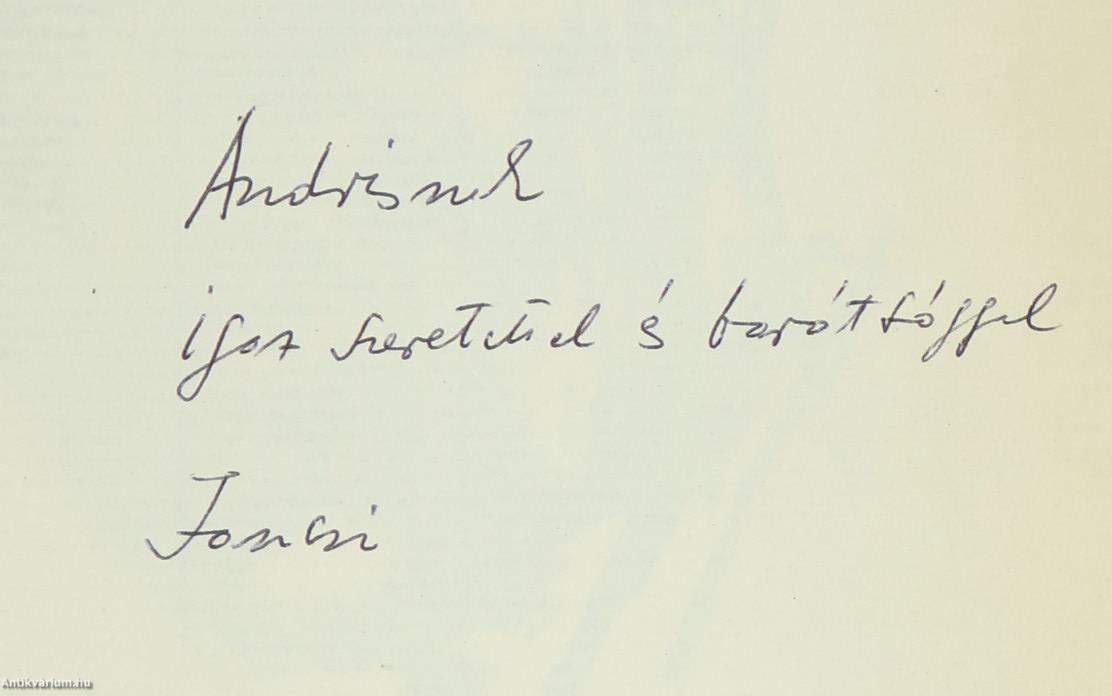 Andrisnak
igaz szeretettel és barátsággal
Jancsi
Antikvárium.hu